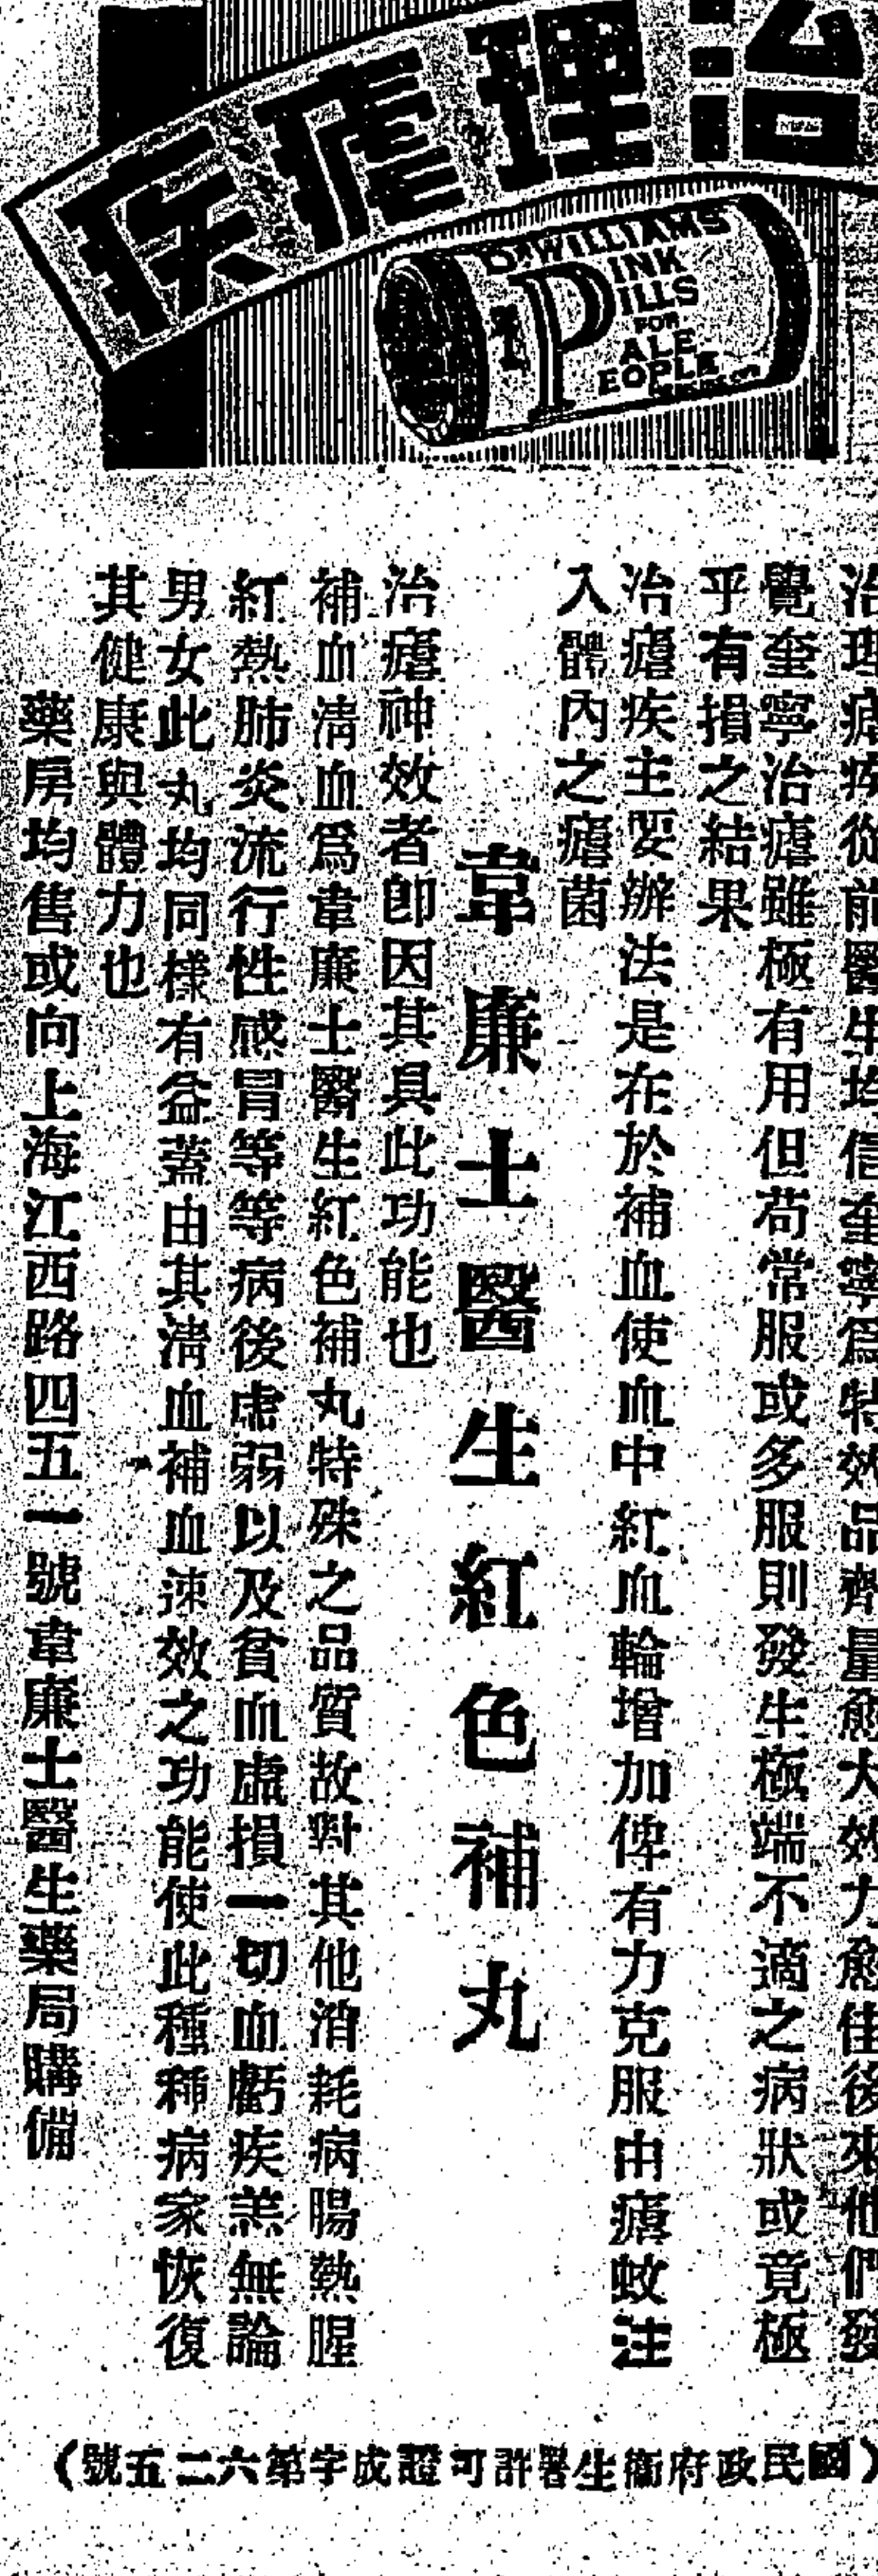 治理瘧疾
DR WILLIAMS
PINK
PILLS
FOR
PALE
PEOPLE
治理瘧疾從前醫生均信奎寧爲特效品劑量愈大效力愈佳後來他們發
覺奎寧治瘧雖極有用但苟常服或多服則發生極端不適之病狀或竟極
乎有損之結果
治瘧疾主要辦法是在於補血使血中紅血輪增加俾有力克服由瘧蚊注
入體內之瘧菌
韋廉士醫生紅色補丸
治瘧神效者卽因其具此功能也
補血淸血爲韋廉士醫生紅色補丸特殊之品質故對其他消耗病腸熱腥
紅熱肺炎流行性感冒等等病後虛弱以及貧血虛損一切血虧疾恙無論
男女此丸均同樣有益蓋由其淸血補血速效之功能使此種種病家恢復
其健康與體力也
藥房均售或向上海江西路四五一號韋廉士醫生藥局購備
(國民政府衞生署許可證成字第六二五號)